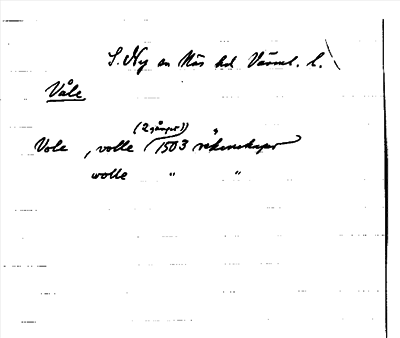 S. Ny sn Näs hd Värml. l.
Våle
(2 gånger)
Vole , volle 1503 räkenskaper
wolle " "